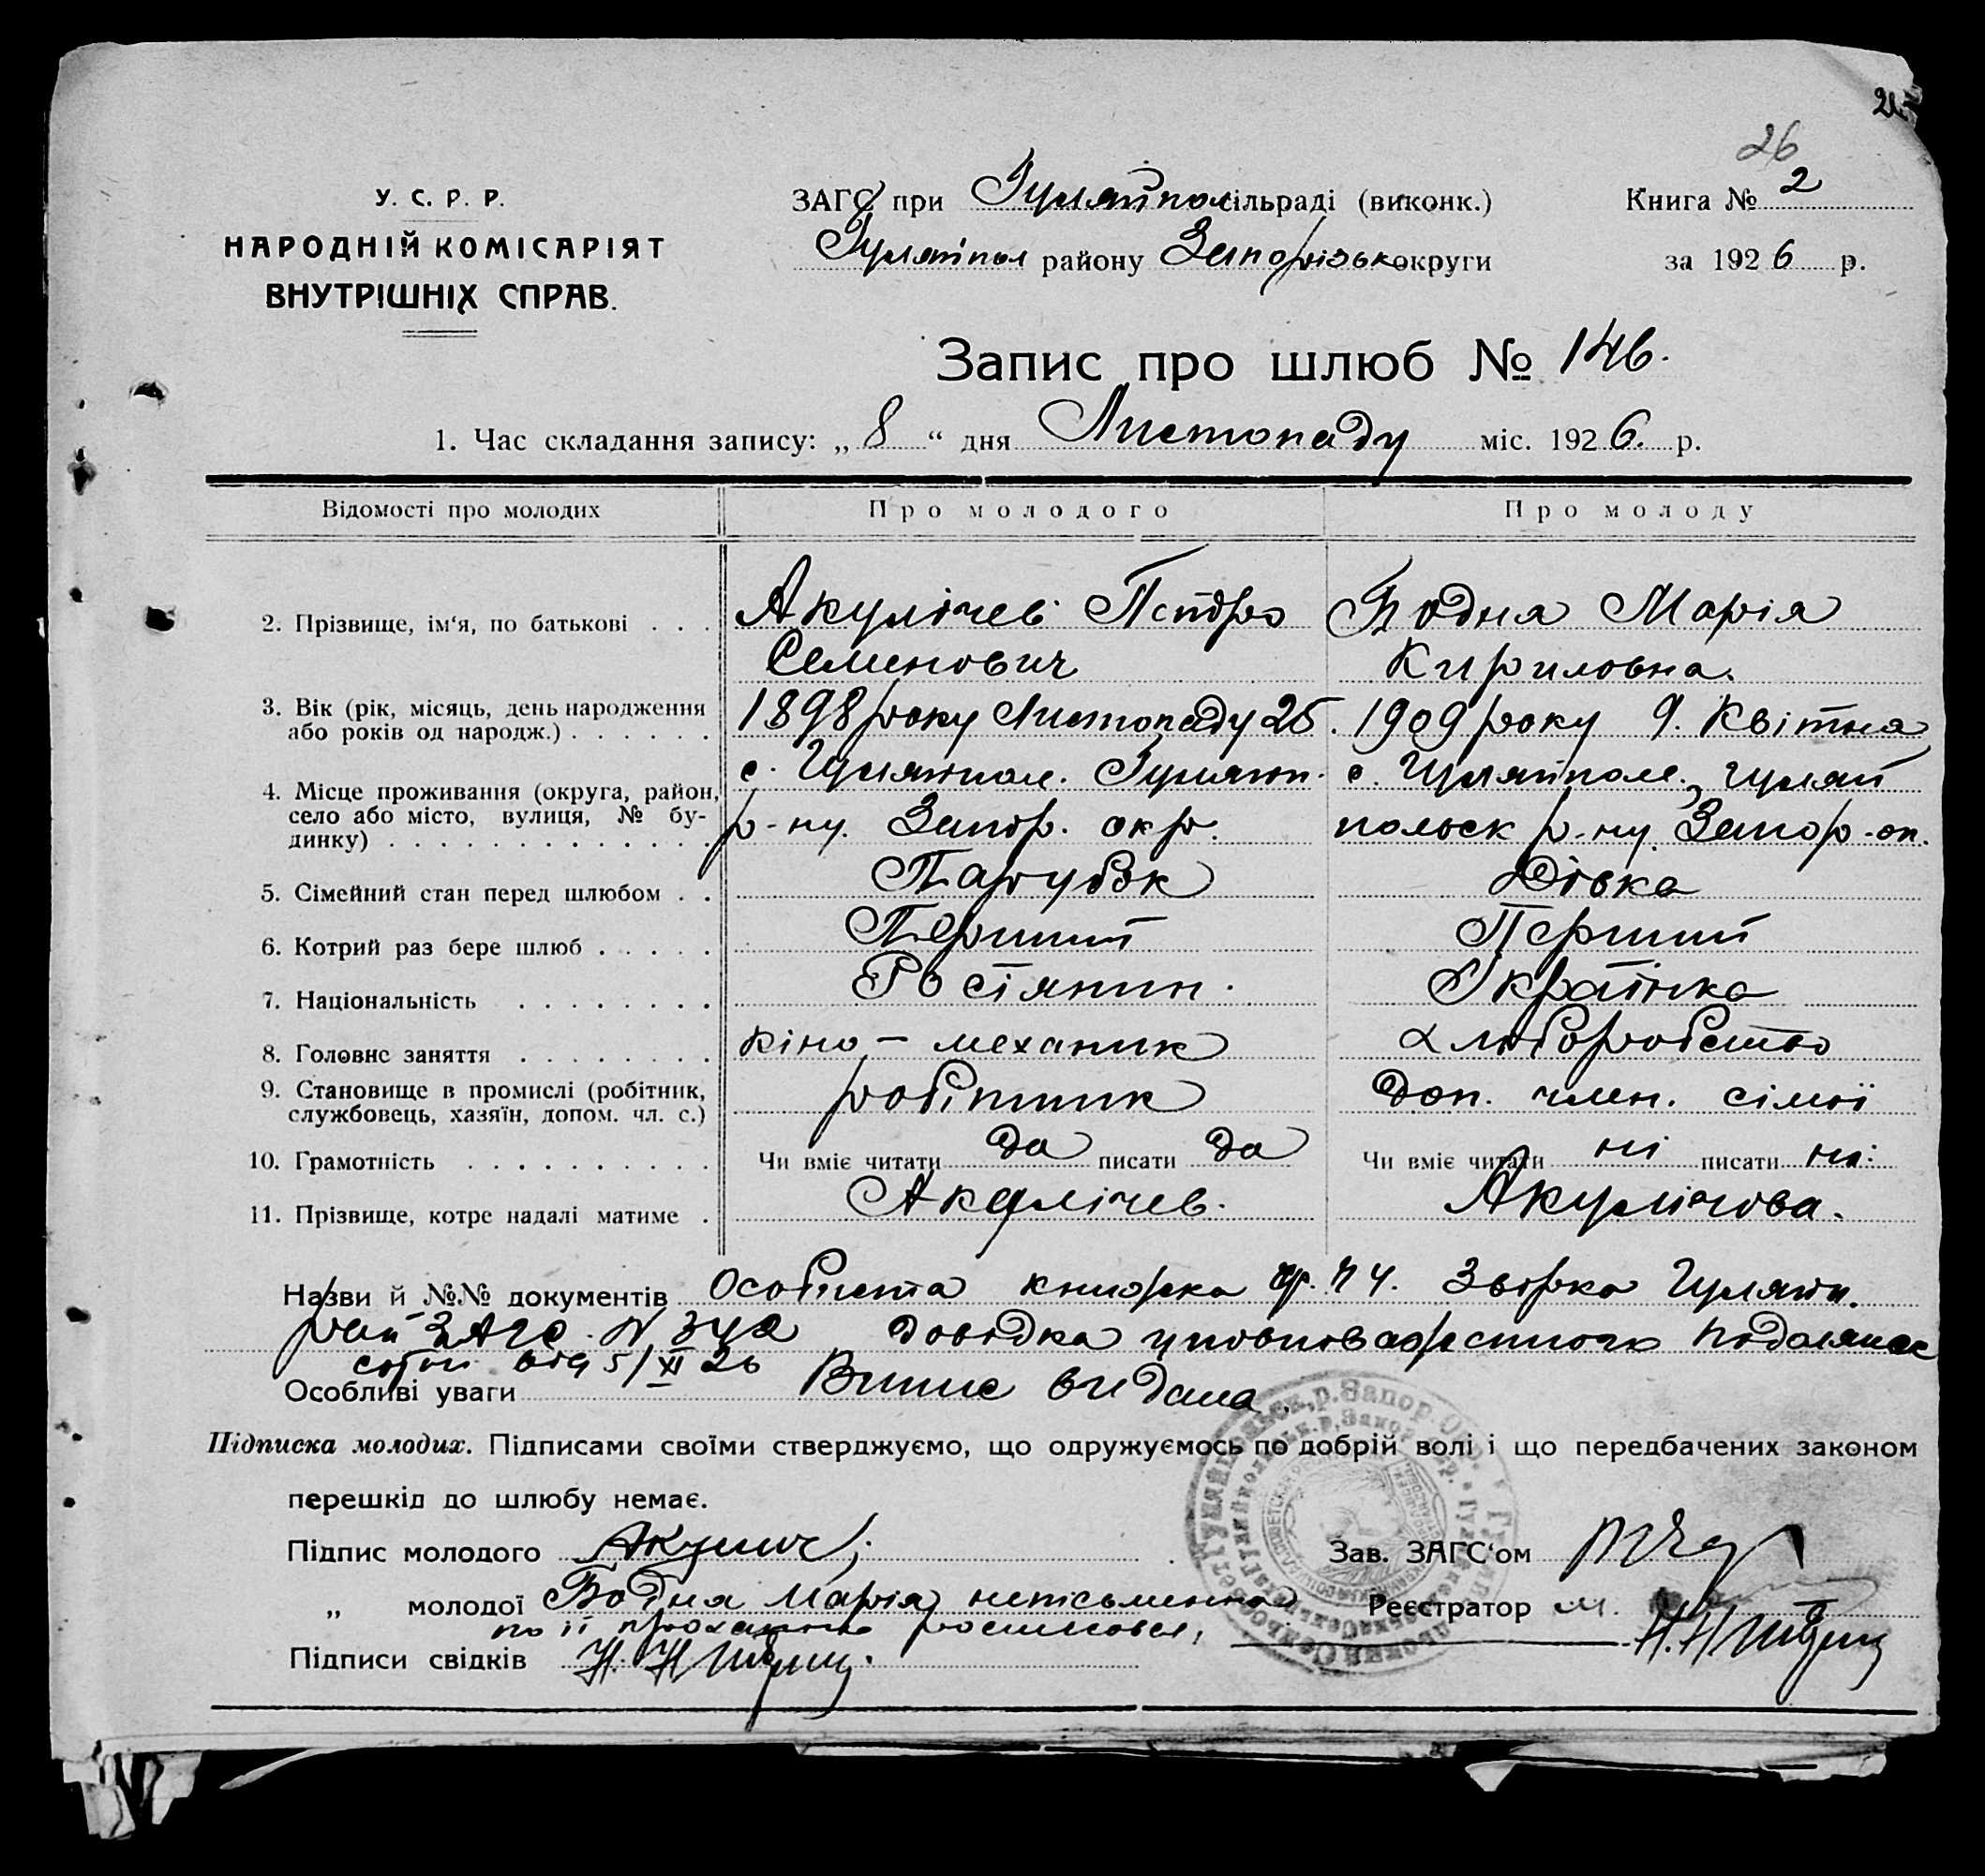 26
У. С. Р. Р.
НАРОДНІЙ КОМІСАРІЯТ
ВНУТРІШНІХ СПРАВ.
ЗАГС при Гуляйпол сільраді (виконк.)
Гуляйпол району Запорізьк округи
Книга № 2
за 1926 р.
Запис про шлюб № 146.
1. Час складання запису: „ 8 “ дня Листопаду міс. 1926. р.
Відомості про молодих Про молодого Про молоду
2. Прізвище, ім‘я, по батькові . . . Акулічев Петро Бодня Марія
Семенович Кириловна.
3. Вік (рік, місяць, день народження або років од народж.) . . . . . . 1898 року Листопаду 25. 1909 року 9. Квітня
4. Місце проживання (округа, район, село або місто, вулиця, № будинку) . . . с. Гуляйпол. Гуляйп. с. Гуляйполе, Гуляй
р-ну. Запор. окр. польск р-ну. Запор-ок.
5. Сімейний стан перед шлюбом . . Парубок Дівка
6. Котрий раз бере шлюб . . . . . Перший Перший
7. Національність . . . . . . . Росіянин. Українка
8. Головне заняття . . . . . . . кіно-механик хліборобство
9. Становище в промислі (робітник, службовець, хазяїн, допом. чл. с.) робітник Доп. член. сімії
10. Грамотність . . . . . . . . . . Чи вміє читати да писати да Чи вміє читати ні писати ні
11. Прізвище, котре надалі матиме . Акулічев. Акулічова.
Назви й №№ документів Особиста книжка Гуляйп.
рай ЗАГС. N 342 Довідка уповноваженого
від 5/XI 26
Особливі уваги Випис видана
Підписка молодих. Підписами своїми стверджуємо, що одружуємось по добрій волі і що передбачених законом
перешкід до шлюбу немає.
Підпис молодого Зав. ЗАГС‘ом
„ молодої Бодня Марія неписьменна Реєстратор
по її проханню росписовся,
Підписи свідків